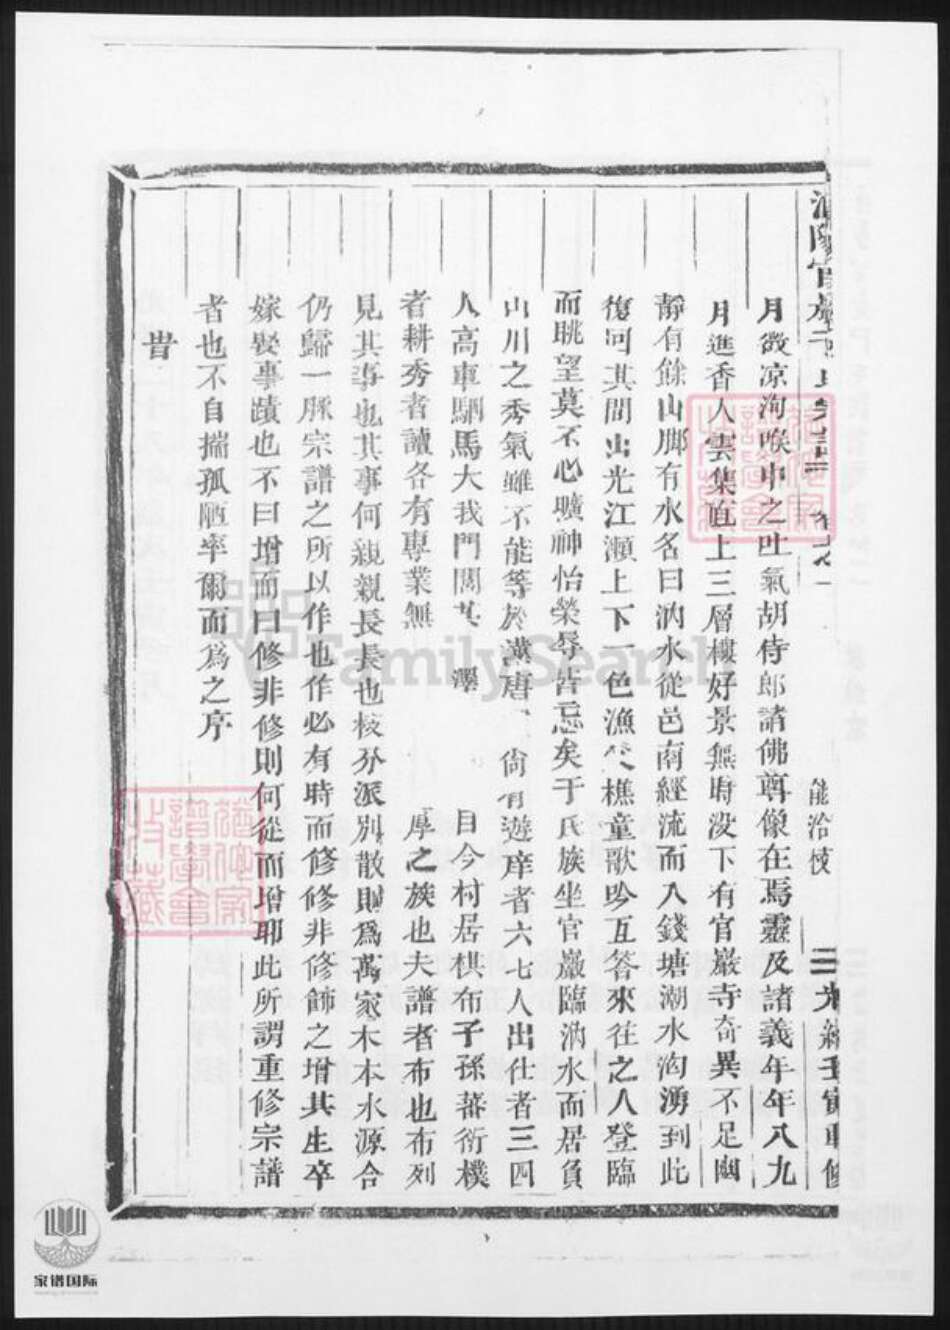 月微凉洵喉中之吐氣胡侍郎諸佛尊像在焉靈及諸義年年八九
月進香人雲集直上三層樓好景無時没下有官巖寺奇異不足幽
靜有餘山脚有水名曰汭水從邑南經流而入錢塘潮水洶湧到此
復回其間出光江瀬上下一色漁父樵童歌吟互答來往之人登臨
而眺望莫不心曠神怡榮辱皆忘矣于氏族坐官巖臨汭水而居負
山川之秀氣雖不能等於漢唐 尚有遊庠者六七人出仕者三四
人高車駟馬大我門閭其 澤 目今村居棋布子孫蕃衍樸
者耕秀者讀各有專業無 厚之族也夫譜者布也布列
見其事也其事何親親長長也枝分派別散則爲萬家木本水源合
仍歸一脉宗譜之所以作也作必有時而修修非修飾之增其生卒
嫁娶事蹟也不曰增而曰修非修則何從而增耶此所謂重修宗譜
者也不自揣孤陋率爾而爲之序
旹
家谱国际
FamilySearch